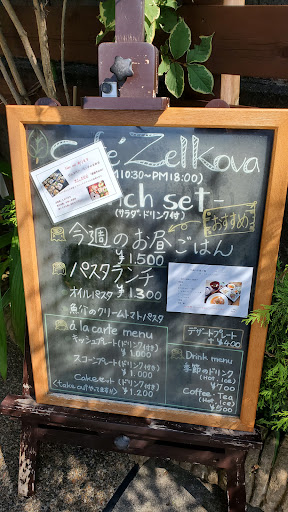 Café Zelkova
10:30~PM18:00)
Lunch set
(サラダ・ドリンク付)
おすすめ
今週のお昼ごはん
¥1,500
パスタランチ
オイルパスタ ¥1,300
魚介のクリームトマトパスタ
à la carte menu
キッシュプレート(ドリンク付き)
¥1,000
スコーンプレート(ドリンク付き)
¥1,000
Cakeset(ドリンク付き)
(take outやってます) ¥1,200
デザートプレート
+ ¥400
Drink menu
季節のドリンク
(Hot・ice)
¥700
Coffee・Tea
(Hot・ice)
¥500